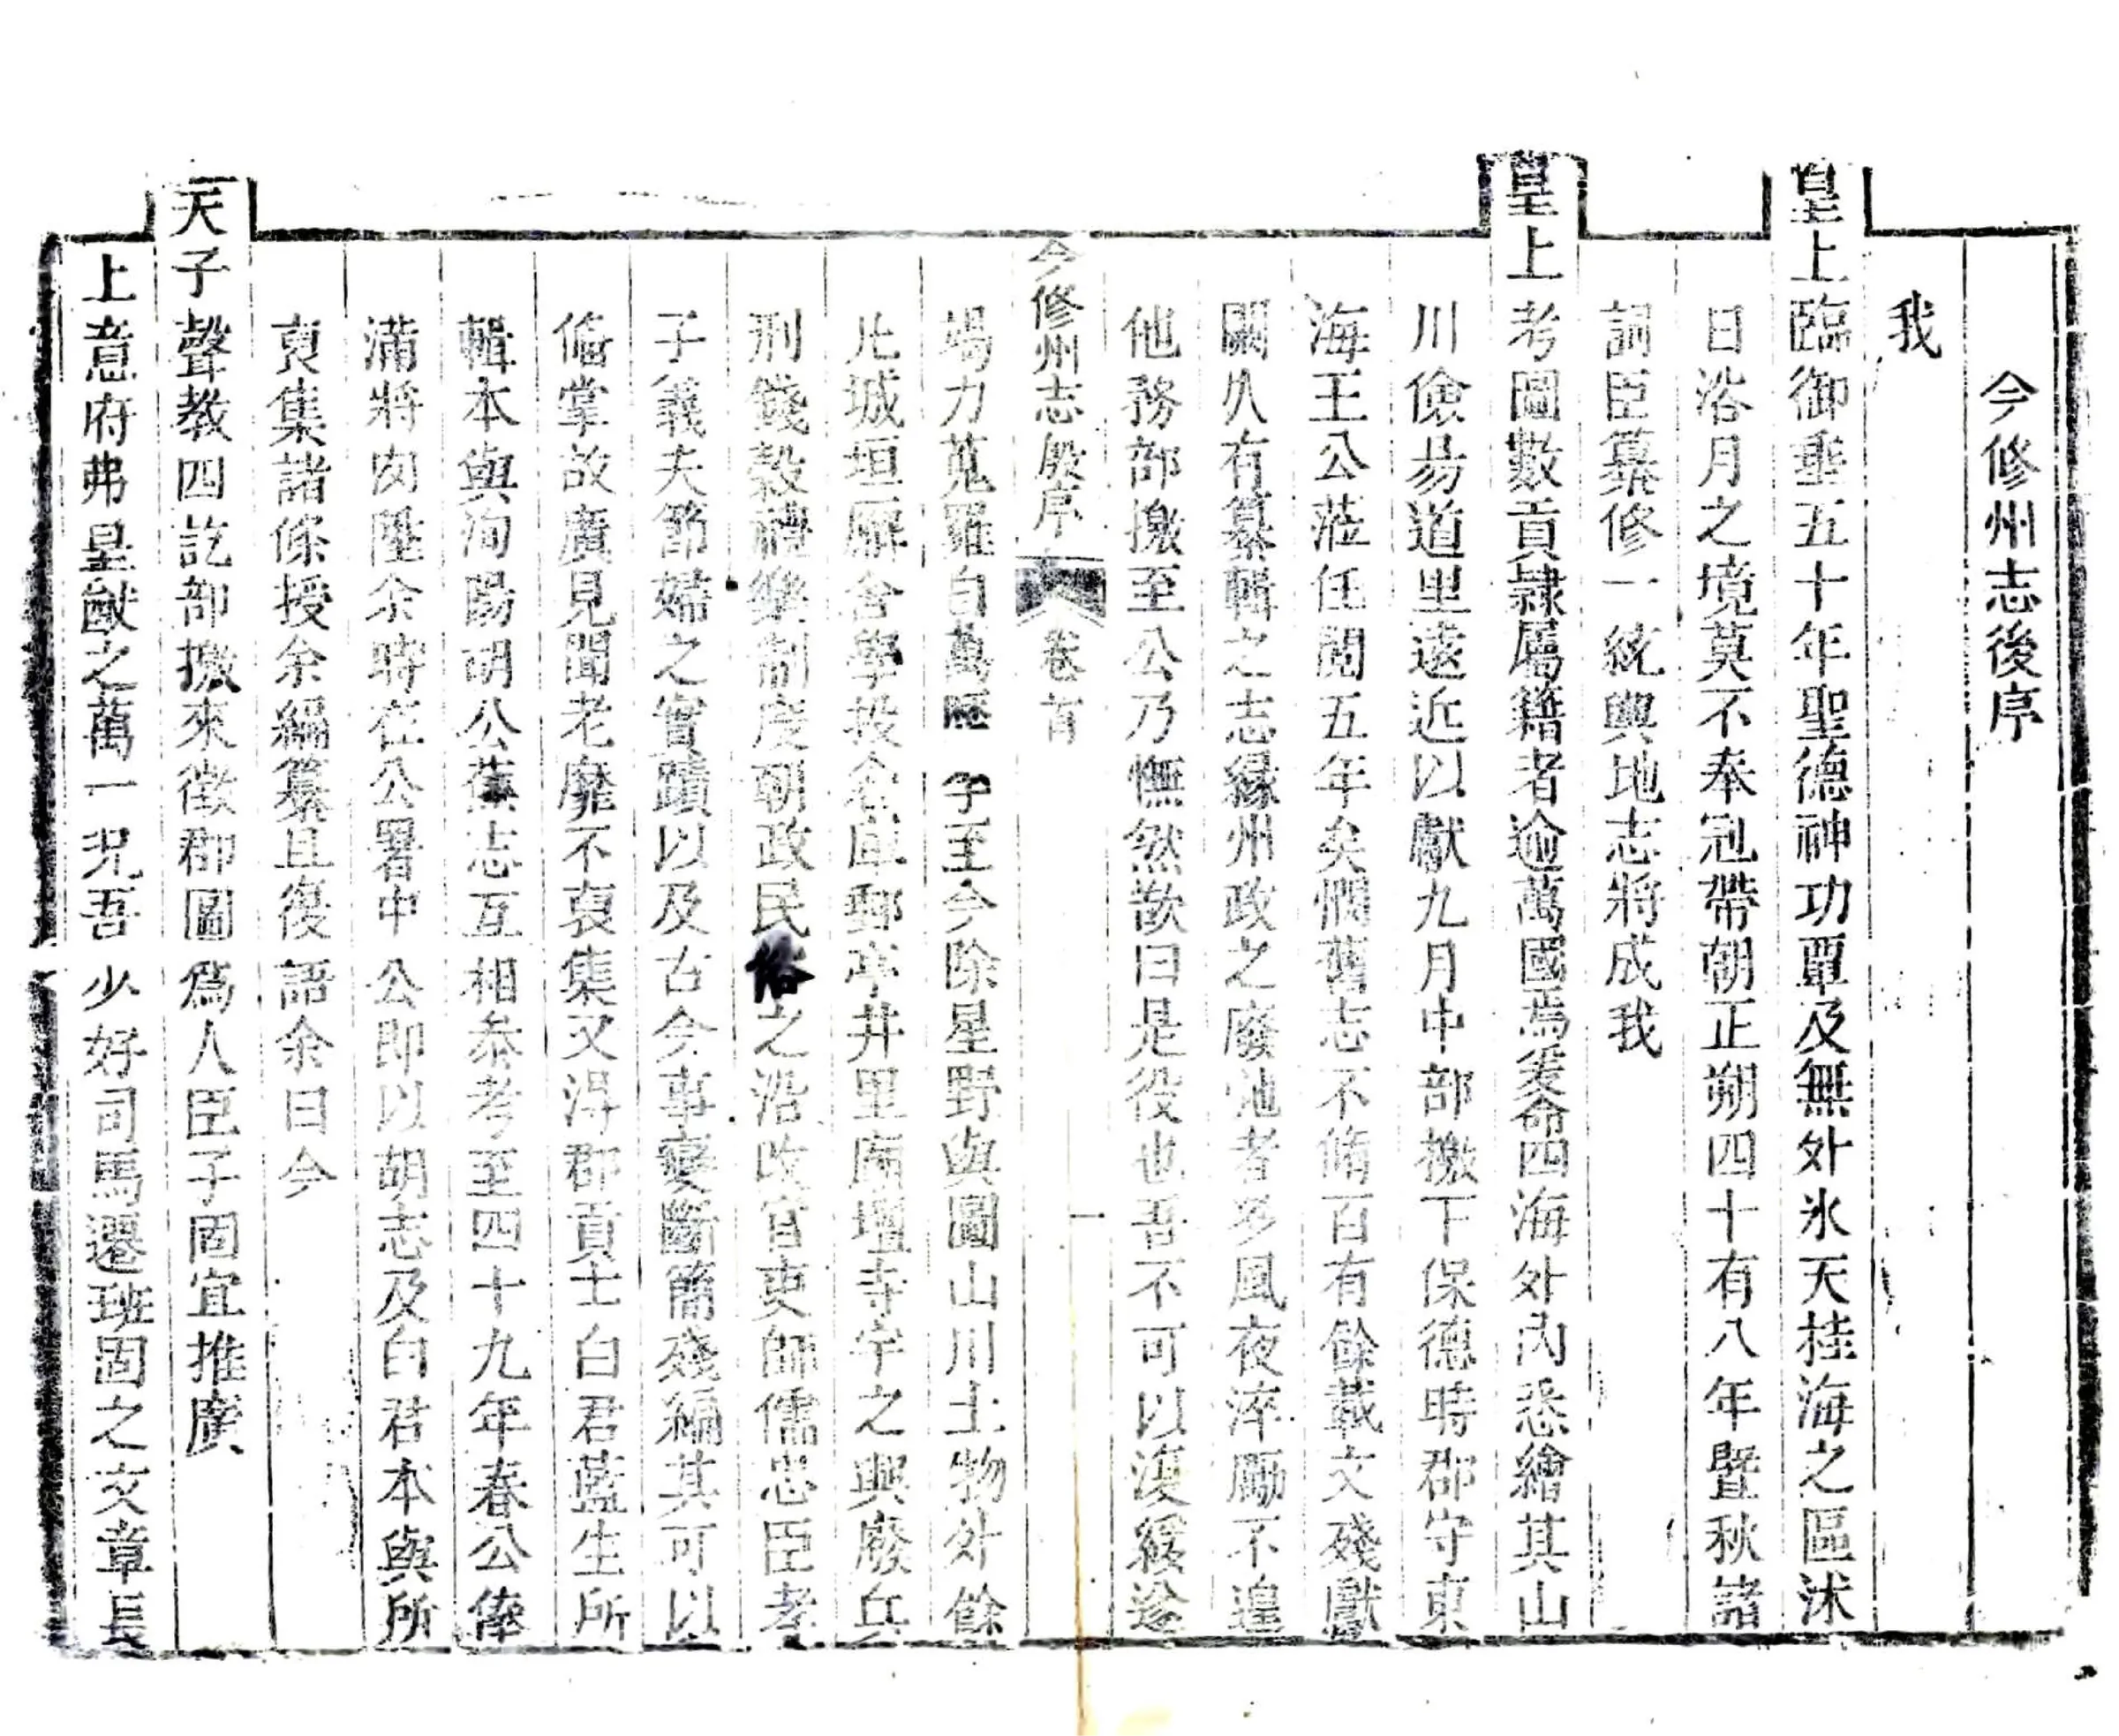 今修州志後序
我
皇上臨御垂五十年聖德神功覃及無外氷天桂海之區沭
日浴月之境莫不奉冠帶朝正朔四十有八年曁秋諸
詞臣纂修一統輿地志將成我
皇上考圖數貢隷屬籍者逾萬國焉爰命四海外內悉繪其山
川儉易道里遠近以獻九月中部檄下保德時郡守東
海王公蒞任閱五年矣憫舊志不脩百有餘載文殘獻
闕久有纂輯之志緣州政之廢弛者多風夜淬勵不遑
他務部檄至公乃憮然歎曰是役也吾不可以復緩遂
今修州志殷序 卷首 一
場力蒐羅自萬曆 至今除星野與圖山川土物外餘
凡城垣廨舍學校倉庫郵亭井里廟壇寺宇之興廢兵
刑錢穀禮樂制度朝政民俗之沿改官吏師儒忠臣孝
子義夫節婦之實蹟以及古今事變斷簡殘編其可以
備掌故廣見聞老靡不裒集又淂郡貢士白君藍生所
輯本與洵陽胡公 志互相叅考至四十九年春公俸
滿將內陞余時在公署中公即以胡志及白君本與所
裒集諸條授余編纂且復語余曰今
天子聲教四訖部檄來徵郡圖爲人臣子固宜推廣
上意府弗呈猷之萬一况吾少好司馬遷班固之文章長